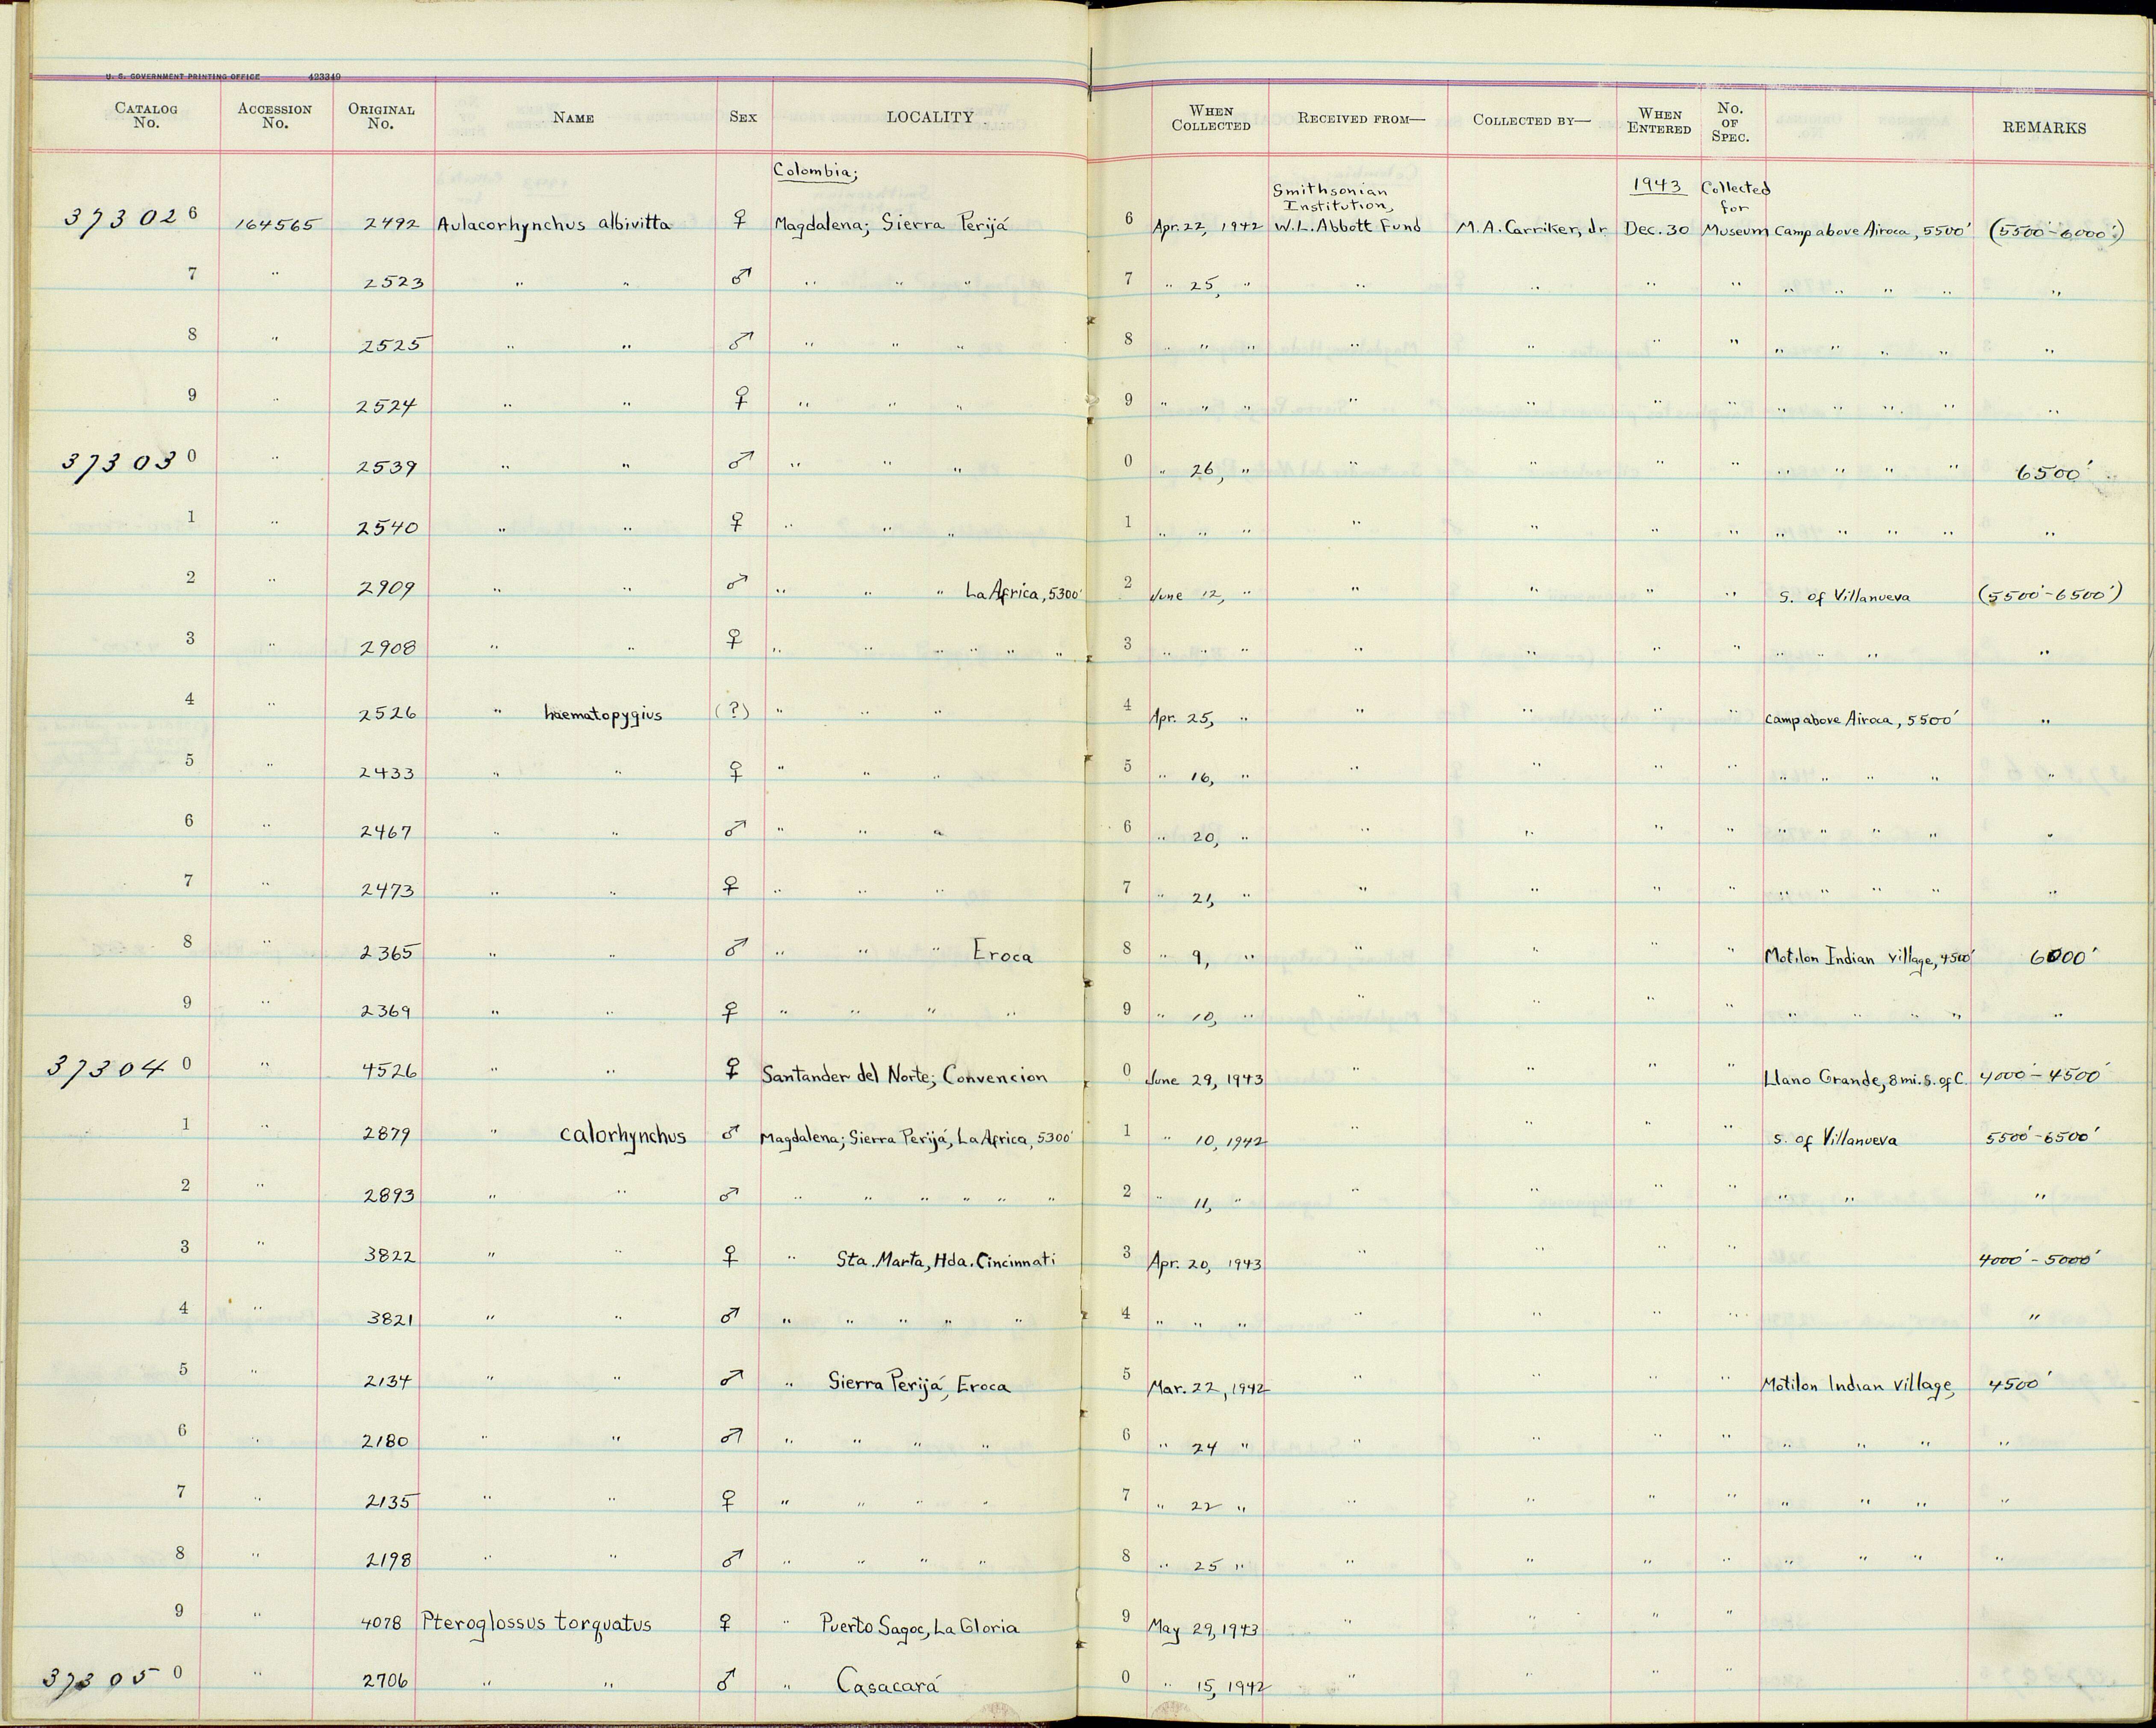 U. S. GOVERNMENT PRINTING OFFICE 423349
CATALOG No. ACCESSION No. ORIGINAL No. NAME SEX LOCALITY WHEN COLLECTED RECEIVED FROM— COLLECTED BY— WHEN ENTERED No. OF SPEC. REMARKS
Colombia; Smithsonian Institution, 1943 Collected for
373026 164565 2492 Aulacorhynchus albivitta ♀ Magdalena; Sierra Perijá 6 Apr. 22, 1942 W.L. Abbott Fund M.A. Carriker, Jr. Dec. 30 Museum Camp above Airoca, 5500' (5500'-6000')
7 " 2523 " " ♂ " " " 7 " 25, " " " " " " " " " "
8 " 2525 " " ♂ " " " 8 " " " " " " " " " " " "
9 " 2524 " " ♀ " " " 9 " " " " " " " " " " " "
373030 " 2539 " " ♂ " " " 0 " 26, " " " " " " " " " 6500'
1 " 2540 " " ♀ " " " 1 " " " " " " " " " " " "
2 " 2909 " " ♂ " " " La Africa, 5300' 2 June 12, " " " " " S. of Villanueva (5500'-6500')
3 " 2908 " " ♀ " " " " " " 3 " " " " " " " " " " "
4 " 2526 " haematopygius (?) " " " 4 Apr. 25, " " " " " Camp above Airoca, 5500' "
5 " 2433 " " ♀ " " " 5 " 16, " " " " " " " " " "
6 " 2467 " " ♂ " " " 6 " 20, " " " " " " " " " "
7 " 2473 " " ♀ " " " 7 " 21, " " " " " " " " " "
8 " 2365 " " ♂ " " " Eroca 8 " 9, " " " " " Motilon Indian Village, 4500' 6000'
9 " 2369 " " ♀ " " " " 9 " 10, " " " " " " " " " "
373040 " 4526 " " ♀ Santander del Norte; Convencion 0 June 29, 1943 " " " " Llano Grande, 8 mi. S. of C. 4000'-4500'
1 " 2879 " calorhynchus ♂ Magdalena; Sierra Perijá, La Africa, 5300' 1 " 10, 1942 " " " " S. of Villanueva 5500'-6500'
2 " 2893 " " ♂ " " " " " " 2 " 11, " " " " " " " "
3 " 3822 " " ♀ " Sta. Marta, Hda. Cincinnati 3 Apr. 20, 1943 " " " " 4000'-5000'
4 " 3821 " " ♂ " " " " " 4 " " " " " " " "
5 " 2134 " " ♂ " Sierra Perijá, Eroca 5 Mar. 22, 1942 " " " " Motilon Indian Village, 4500'
6 " 2180 " " ♂ " " " " 6 " 24 " " " " " " " " "
7 " 2135 " " ♀ " " " " 7 " 22 " " " " " " " " "
8 " 2198 " " ♂ " " " " 8 " 25 " " " " " " " " "
9 " 4078 Pteroglossus torquatus ♀ " Puerto Sagoc, La Gloria 9 May 29, 1943 " " " "
373050 " 2706 " " ♂ " Casacará 0 " 15, 1942 " " " "